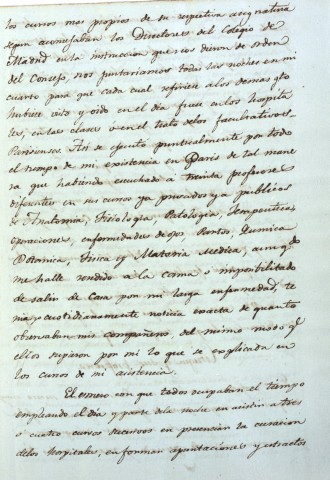 los cursos mas propios de su respectiva asignatura
segun aconsejaban los Directores del Colegio de
Madrid en la instruccion que nos dieron de orden
del Consejo nos juntariamos todas las noches en mi
cuarto para que cada cual refiriese a los demas qto
hubiese visto y oido en el dia fuese en los hospita
les, en las clases ó en el trato de los facultativos
Parisienses. Asi se ejecutó puntualmente por todo
el tiempo de mi existencia en París de tal mane
ra que habiendo escuchado á treinta profesores
diferentes en sus cursos ya privados ya publicos
de Anatomia, Fisiologia, Patologia, Terapeutica
operaciones, enfermedades de ojos, Partos, Quimica
Botanica, Fisica y Materia Medica, aunqe
me halle rendido á la cama ó imposibilitado
de salir de Casa por mi larga enfermedad, te
nia cuotidianamente noticia exacta de quanto
observaban mis compañeros del mismo modo qe
ellos supieron por mi lo que se explicaba en
los cursos de mi asistencia.
El esmero con que todos ocupaban el tiempo
empleando el dia y parte de la noche en asistir a tres
ó cuatro cursos en presenciar la curacion
de los hospitales, en formar apuntaciones y extractos